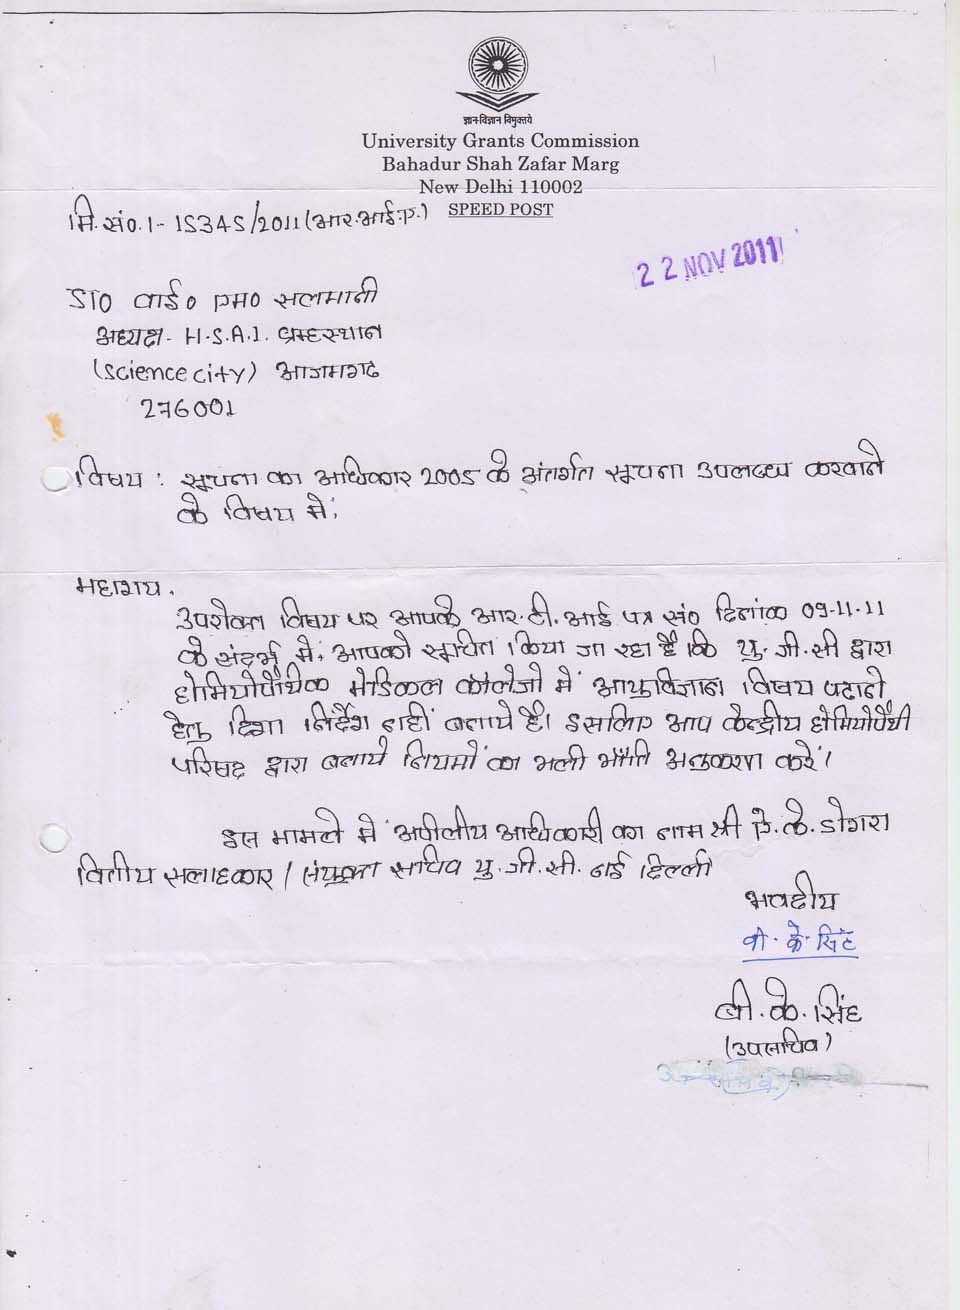 ज्ञान-विज्ञान विमुक्तये
University Grants Commission
Bahadur Shah Zafar Marg
New Delhi 110002
SPEED POST
मि.सं०.1-15345/2011(आर.आई.ए.)
22 NOV 2011
डा० वाई० एम० सलमानी
अध्यक्ष- H.S.A.I. ब्रम्हस्थान
(science city) आजमगढ
276001
विषय : सूचना का अधिकार 2005 के अंतर्गत सूचना उपलब्ध करवाने
के विषय में।
महाशय.
उपरोक्त विषय पर आपके आर.टी.आई पत्र सं० दिनांक 09-11-11
के संदर्भ में, आपको सूचित किया जा रहा है कि यु.जी.सी द्वारा
होमियोपैथिक मेडिकल कॉलेजो में आयुविज्ञान विषय पढाने
हेतु दिशा निर्देश नहीं बताये है। इसलिए आप केन्द्रीय होमियोपैथी
परिषद द्वारा बताये नियमों का भली भाँति अनुकरण करें।
इस मामले में अपीलीय अधिकारी का नाम श्री ए.के.डोगरा
वितीय सलाहकार / संयुक्त सचिव यु.जी.सी. नई दिल्ली
भवदीय
वी.के.सिंह
वी.के.सिंह
(उपसचिव)